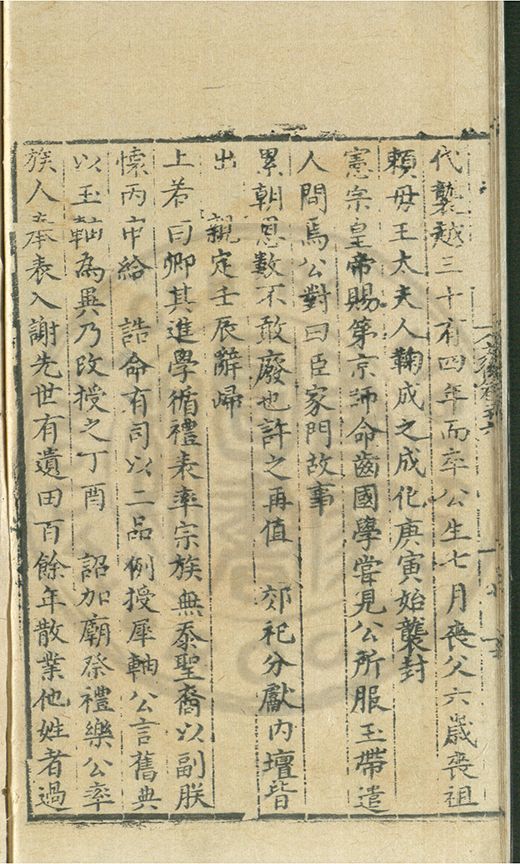 代襲越三十有四年而卒公生七月喪父六歲喪祖
賴母王太夫人鞠成之成化庚寅始襲封
憲宗皇帝賜第京師命齒國學嘗見公所服玉帶遣
人問焉公對曰臣家門故事
累朝恩數不敢廢也許之再值　郊祀分獻內壇皆
出　親定壬辰辭歸
上若曰卿其進學循禮表率宗族無忝聖裔以副朕
懷丙申給　誥命有司以二品例授犀軸公言舊典
以玉軸為異乃改授之丁酉　詔加廟祭禮樂公率
族人奉表入謝先世有遺田百餘年散業他姓者過